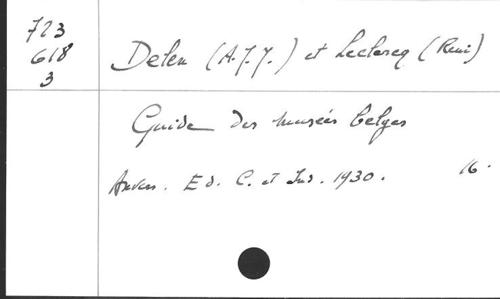 723
618
3
Delen (A.J.J.) et Leclercq (René)
Guide des musées belges
Anvers. Ed. C. et Ind. 1930. 16.